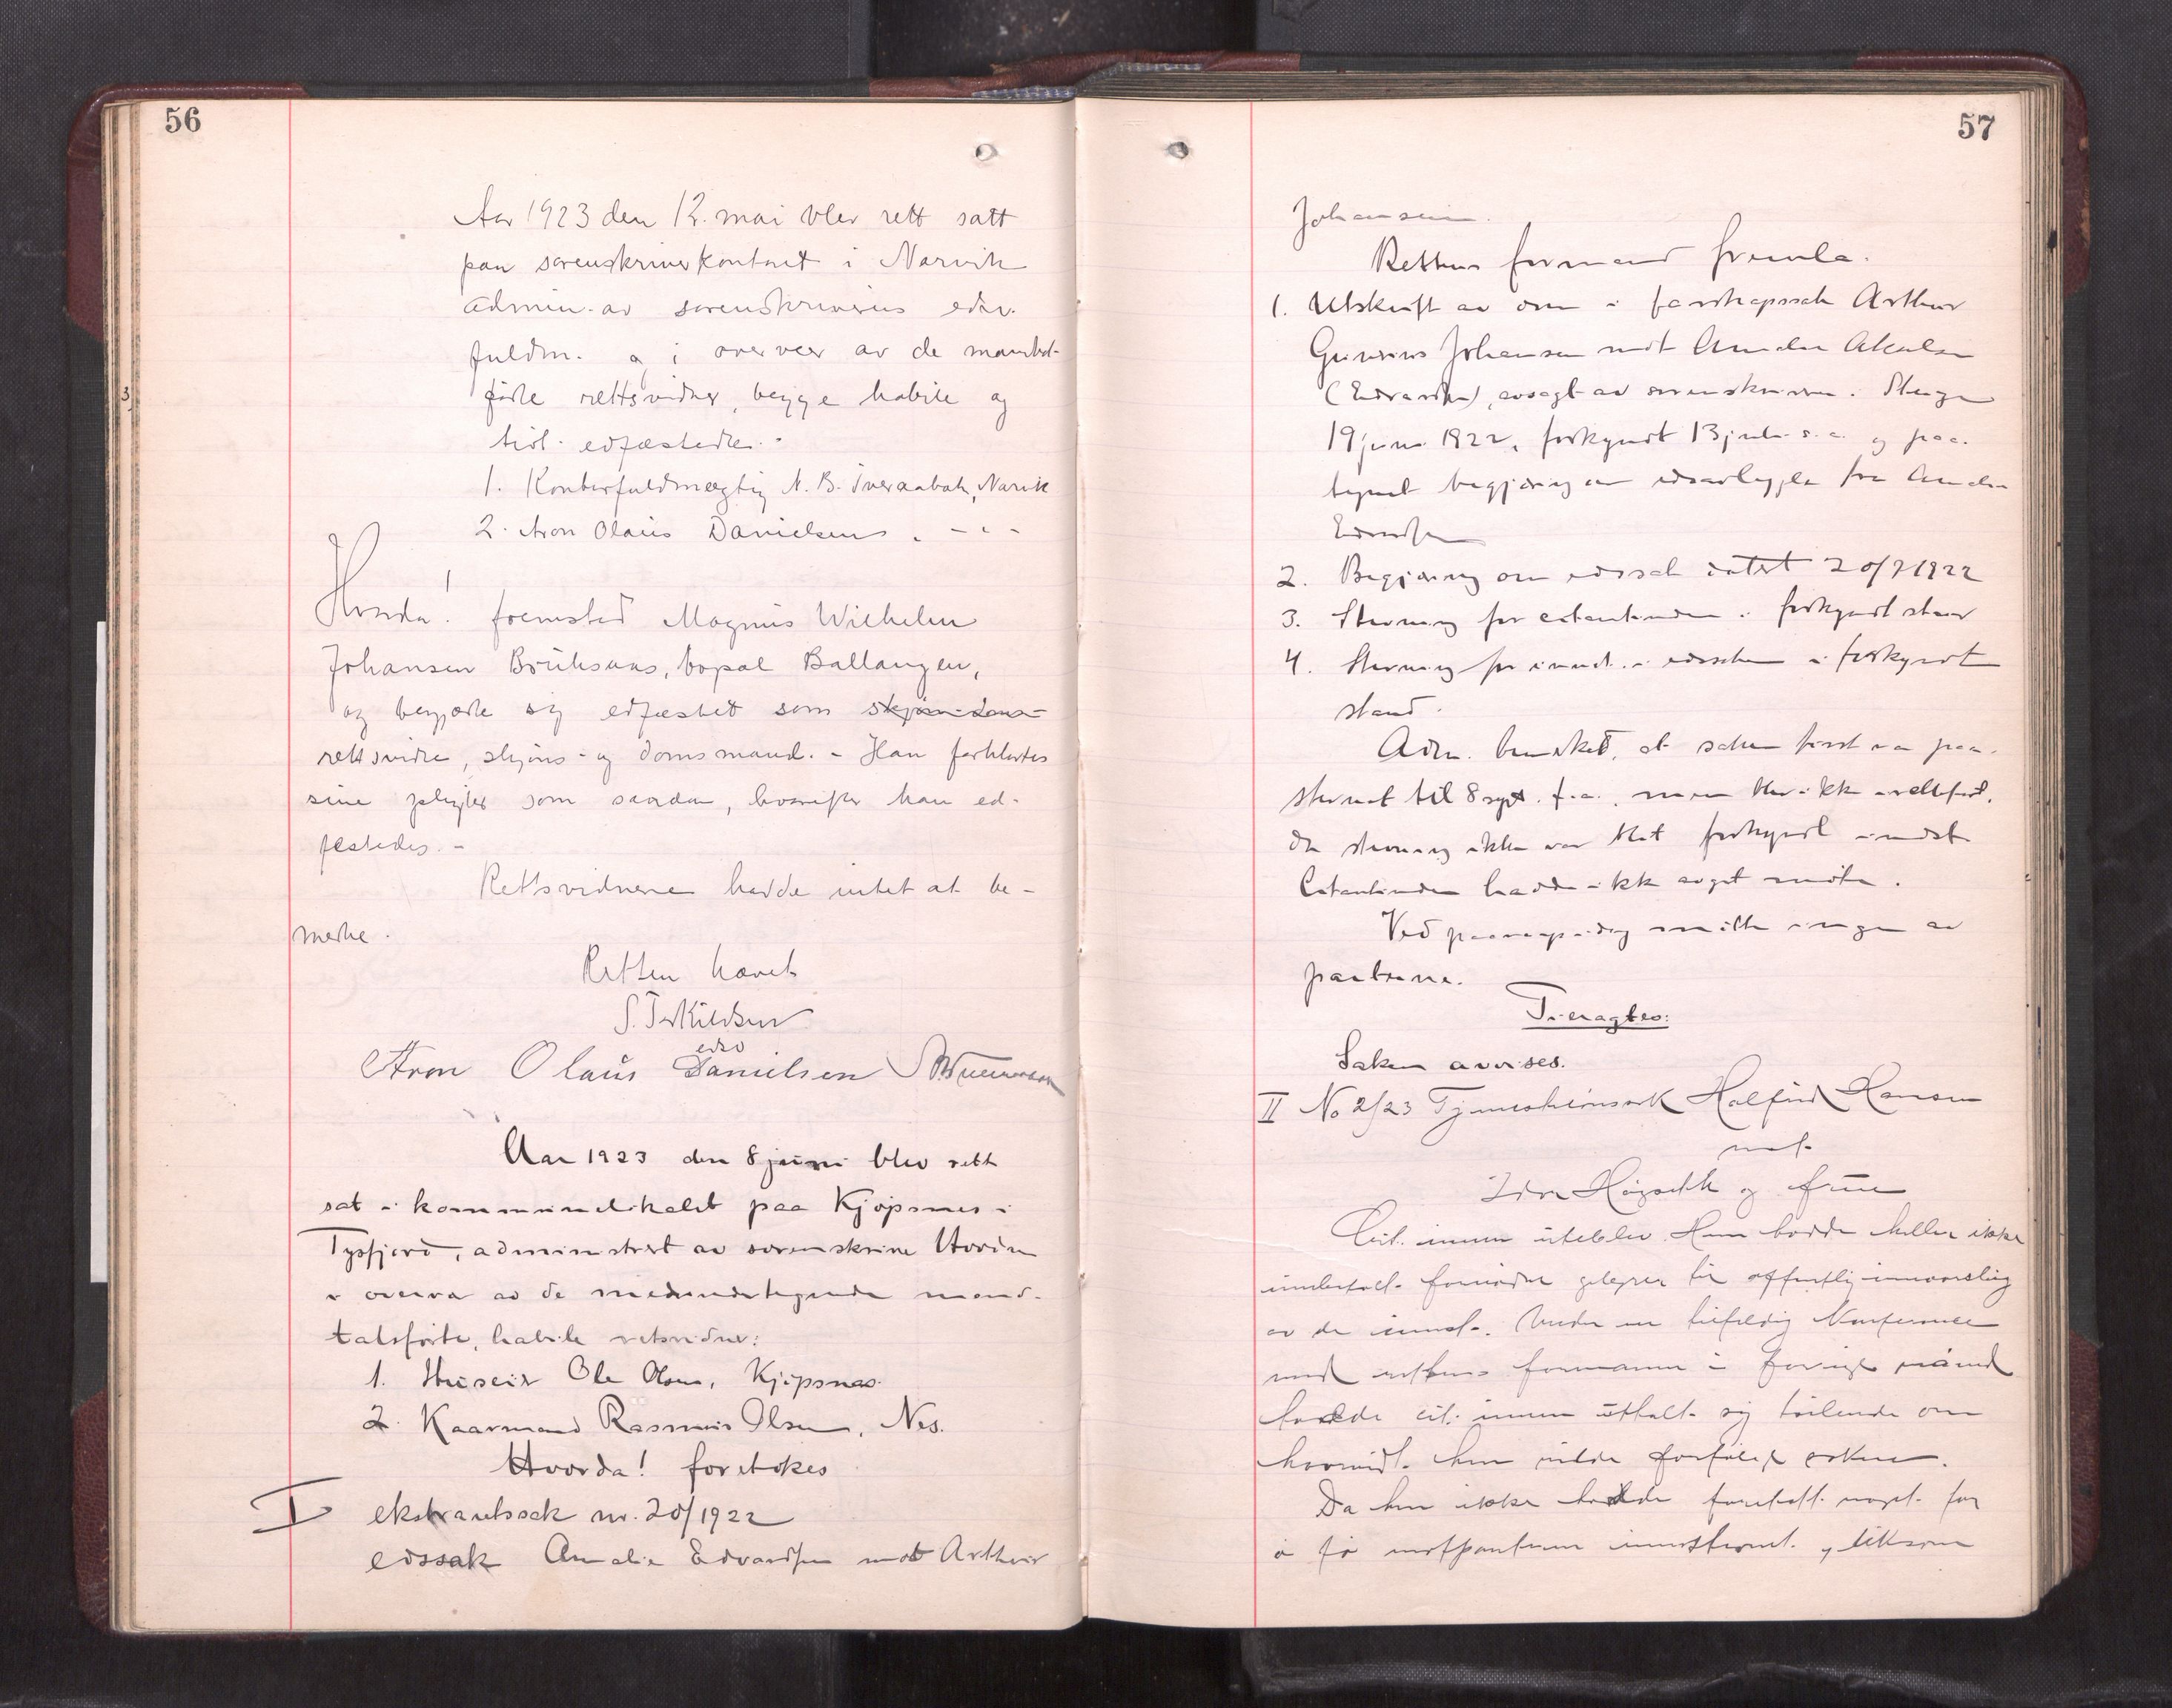 56
Aar 1923 den 12. mai blev rett satt
paa sorenskriverkontoret i Narvik
admin. av sorenskriverens edsv.
fuldm. og i overvær av de mandtal-
førte rettsvidner, begge habile og
tidl. edfæstede.
1. Kontorfuldmægtig N. B. Tveraabak, Narvik
2. Aron Olaus Danielsen, - " -
Hvorda! fremsted Magnus Wilhelm
Johansen Bruksaas, bopæl Ballangen,
og begjærte sig edfæstet som skjøns- doms-
rettsvidne, skjøns- og domsmand. - Han forklartes
sine pligter som saadan, hvorefter han ed-
festedes. -
Rettsvidnene hadde intet at be-
merke.
Retten hævet
S. Terkildsen
edsv
Aron Olaus Danielsen
Aar 1923 den 8 juni blev rett
sat i kommunelokalet paa Kjøpsnes i
Tysfjord, administrert av sorenskriver Hovden
i overvær av de medundertegnede mand-
talsførte, habile retsvidner:
1. Huseier Ole Olsen, Kjøpsnes.
2. Kaarmand Rasmus Olsen, Nes.
Hvorda! foretokes
I ekstraretssak nr. 20/1922
edssak Amalie Edvardsen mot Arthur
57
Johansen.
Rettens formand fremla.
1. Utskrift av dom i farskapssak Arthur
Johansen mot Amalie
(Edvardsen), avsagt av sorenskriveren i Steigen
19 juni 1922, forkyndt 13 juli s. a. og paa-
tegnet begjæring om edsavleggelse fra Amalie
Edvardsen
2. Begjæring om edssak datert 20/7 1922
3. Stevning for citantinden i forkyndt stand
4. Stevning for innst. i edssaken i forkyndt
stand.
Adm. bemerket, at saken først var paa-
stevnet til 8 sept. f. a., men blev ikke rettsført,
da stevning ikke var blit forkyndt innst.
Citantinden hadde ikke avgit møte.
Ved paaroping idag møtte ingen av
partene.
Træragtes:
Saken avvises.
II No 2/23 Tjenestelønssak Halfrid Hansen
mot
Høgbakk og frue
Cit. innen uteblev. Hun hadde heller ikke
innbetalt fornødne gebyrer til offentlig innvarsling
av de innst. Under en tilfeldig konferance
med rettens formann i forrige måned
hadde cit. innen uttalt sig tvilende om
hvorvidt hun vilde forfølge saken.
Da hun ikke hadde foretatt noget for
å få motpartene innstevnet, og likesom